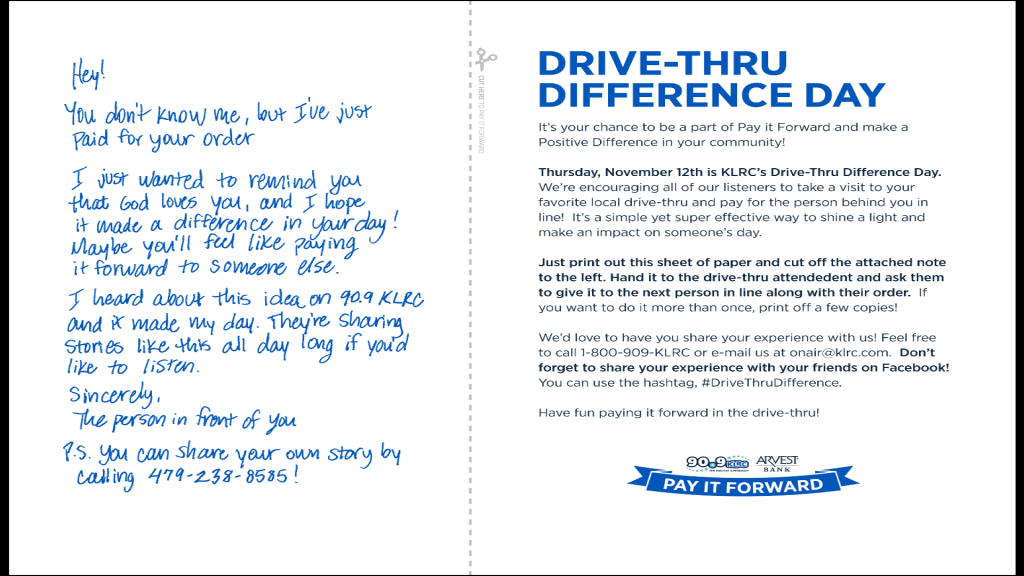 Hey!
You don't know me, but I've just
paid for your order
I just wanted to remind you
that God loves you, and I hope
it made a difference in your day!
Maybe you'll feel like paying
it forward to someone else.
I heard about this idea on 90.9 KLRC
and it made my day. They're sharing
stories like this all day long if you'd
like to listen.
Sincerely,
The person in front of you
P.S. You can share your own story by
calling 479-238-8585!
CUT HERE TO PAY IT FORWARD
DRIVE-THRU
DIFFERENCE DAY
It's your chance to be a part of Pay it Forward and make a
Positive Difference in your community!
Thursday, November 12th is KLRC's Drive-Thru Difference Day.
We're encouraging all of our listeners to take a visit to your
favorite local drive-thru and pay for the person behind you in
line! It's a simple yet super effective way to shine a light and
make an impact on someone's day.
Just print out this sheet of paper and cut off the attached note
to the left. Hand it to the drive-thru attendedent and ask them
to give it to the next person in line along with their order. If
you want to do it more than once, print off a few copies!
We'd love to have you share your experience with us! Feel free
to call 1-800-909-KLRC or e-mail us at onair@klrc.com. Don't
forget to share your experience with your friends on Facebook!
You can use the hashtag, #DriveThruDifference.
Have fun paying it forward in the drive-thru!
90.9 KLRC
ARVEST
BANK
PAY IT FORWARD